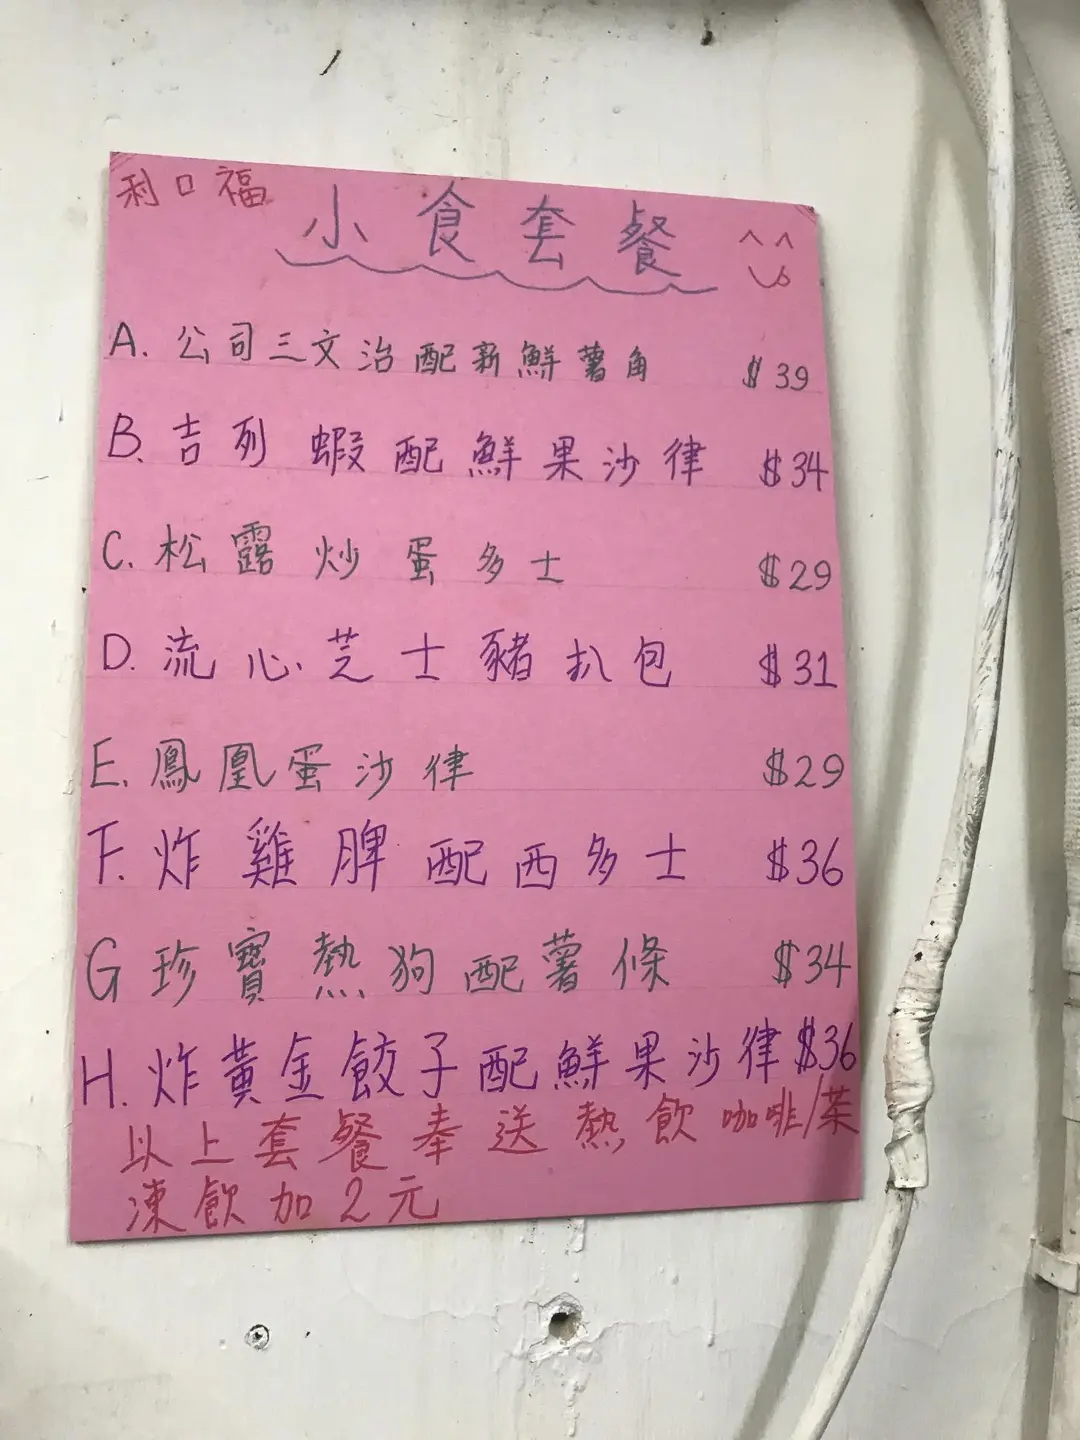 利口福
小食套餐
A. 公司三文治配新鮮薯角 $39
B. 吉列蝦配鮮果沙律 $34
C. 松露炒蛋多士 $29
D. 流心芝士豬扒包 $31
E. 鳳凰蛋沙律 $29
F. 炸雞脾配西多士 $36
G 珍寶熱狗配薯條 $34
H. 炸黃金餃子配鮮果沙律 $36
以上套餐奉送熱飲咖啡/茶
凍飲加2元